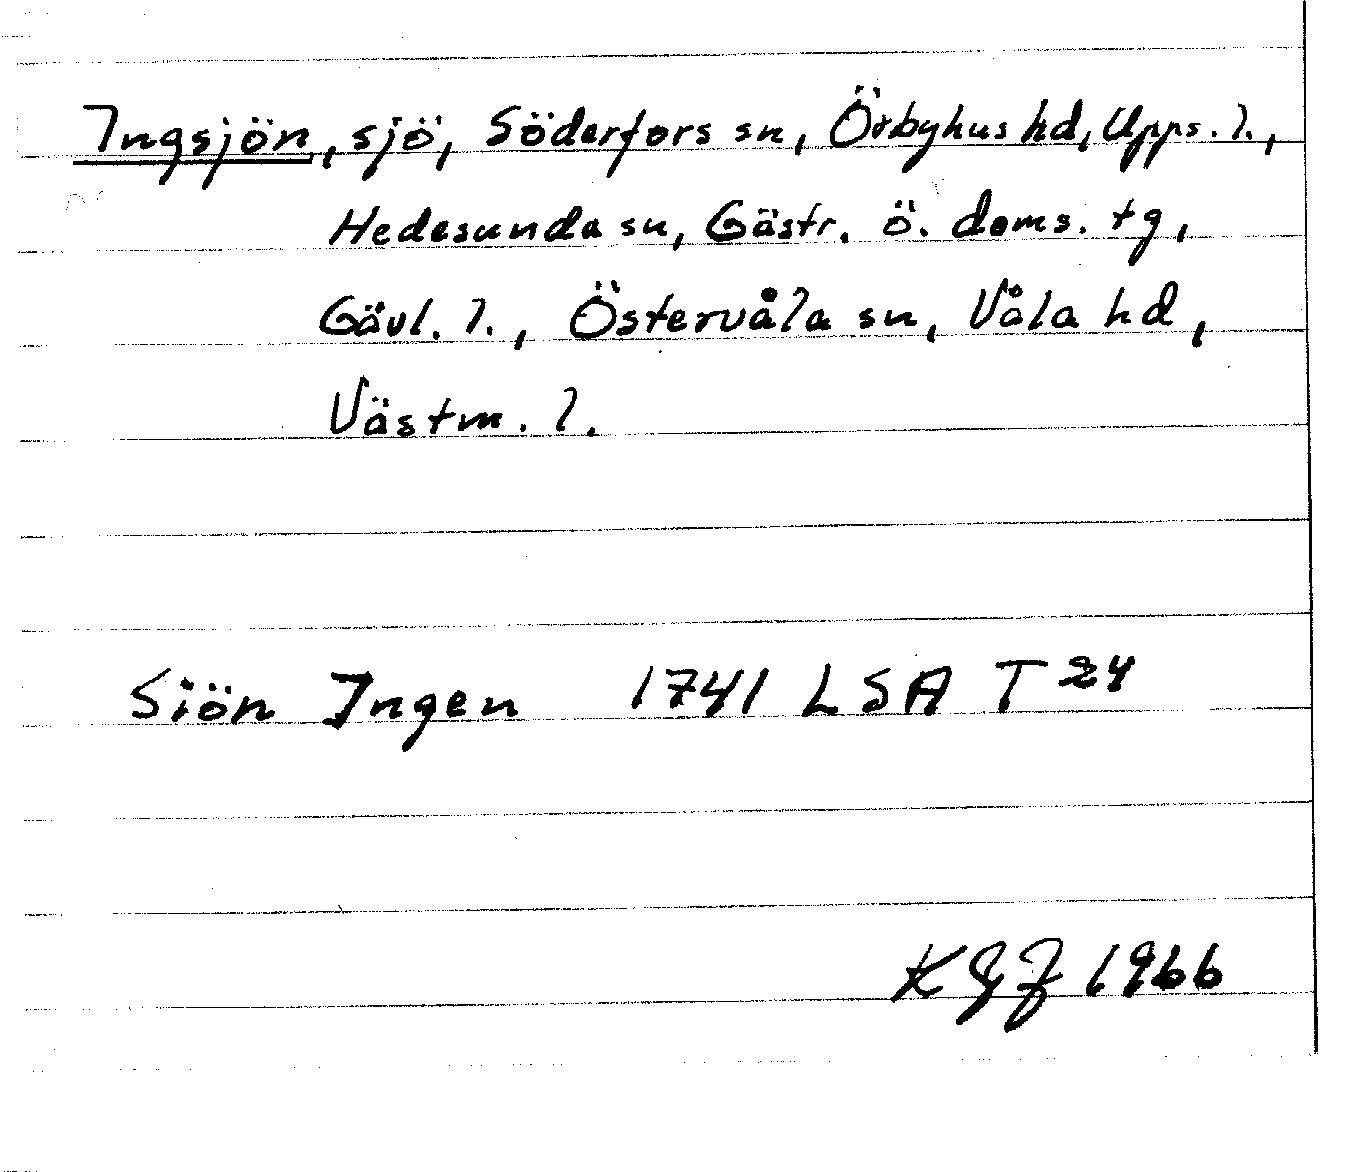 Ingsjön, sjö, Söderfors sn, Örbyhus hd, Upps. l.,
Hedesunda sn, Gästr. ö. doms. tg,
Gävl. l., Östervåla sn, Våla hd,
Västm. l.
Siön Ingen 1741 LSA T 24
KGF 1966